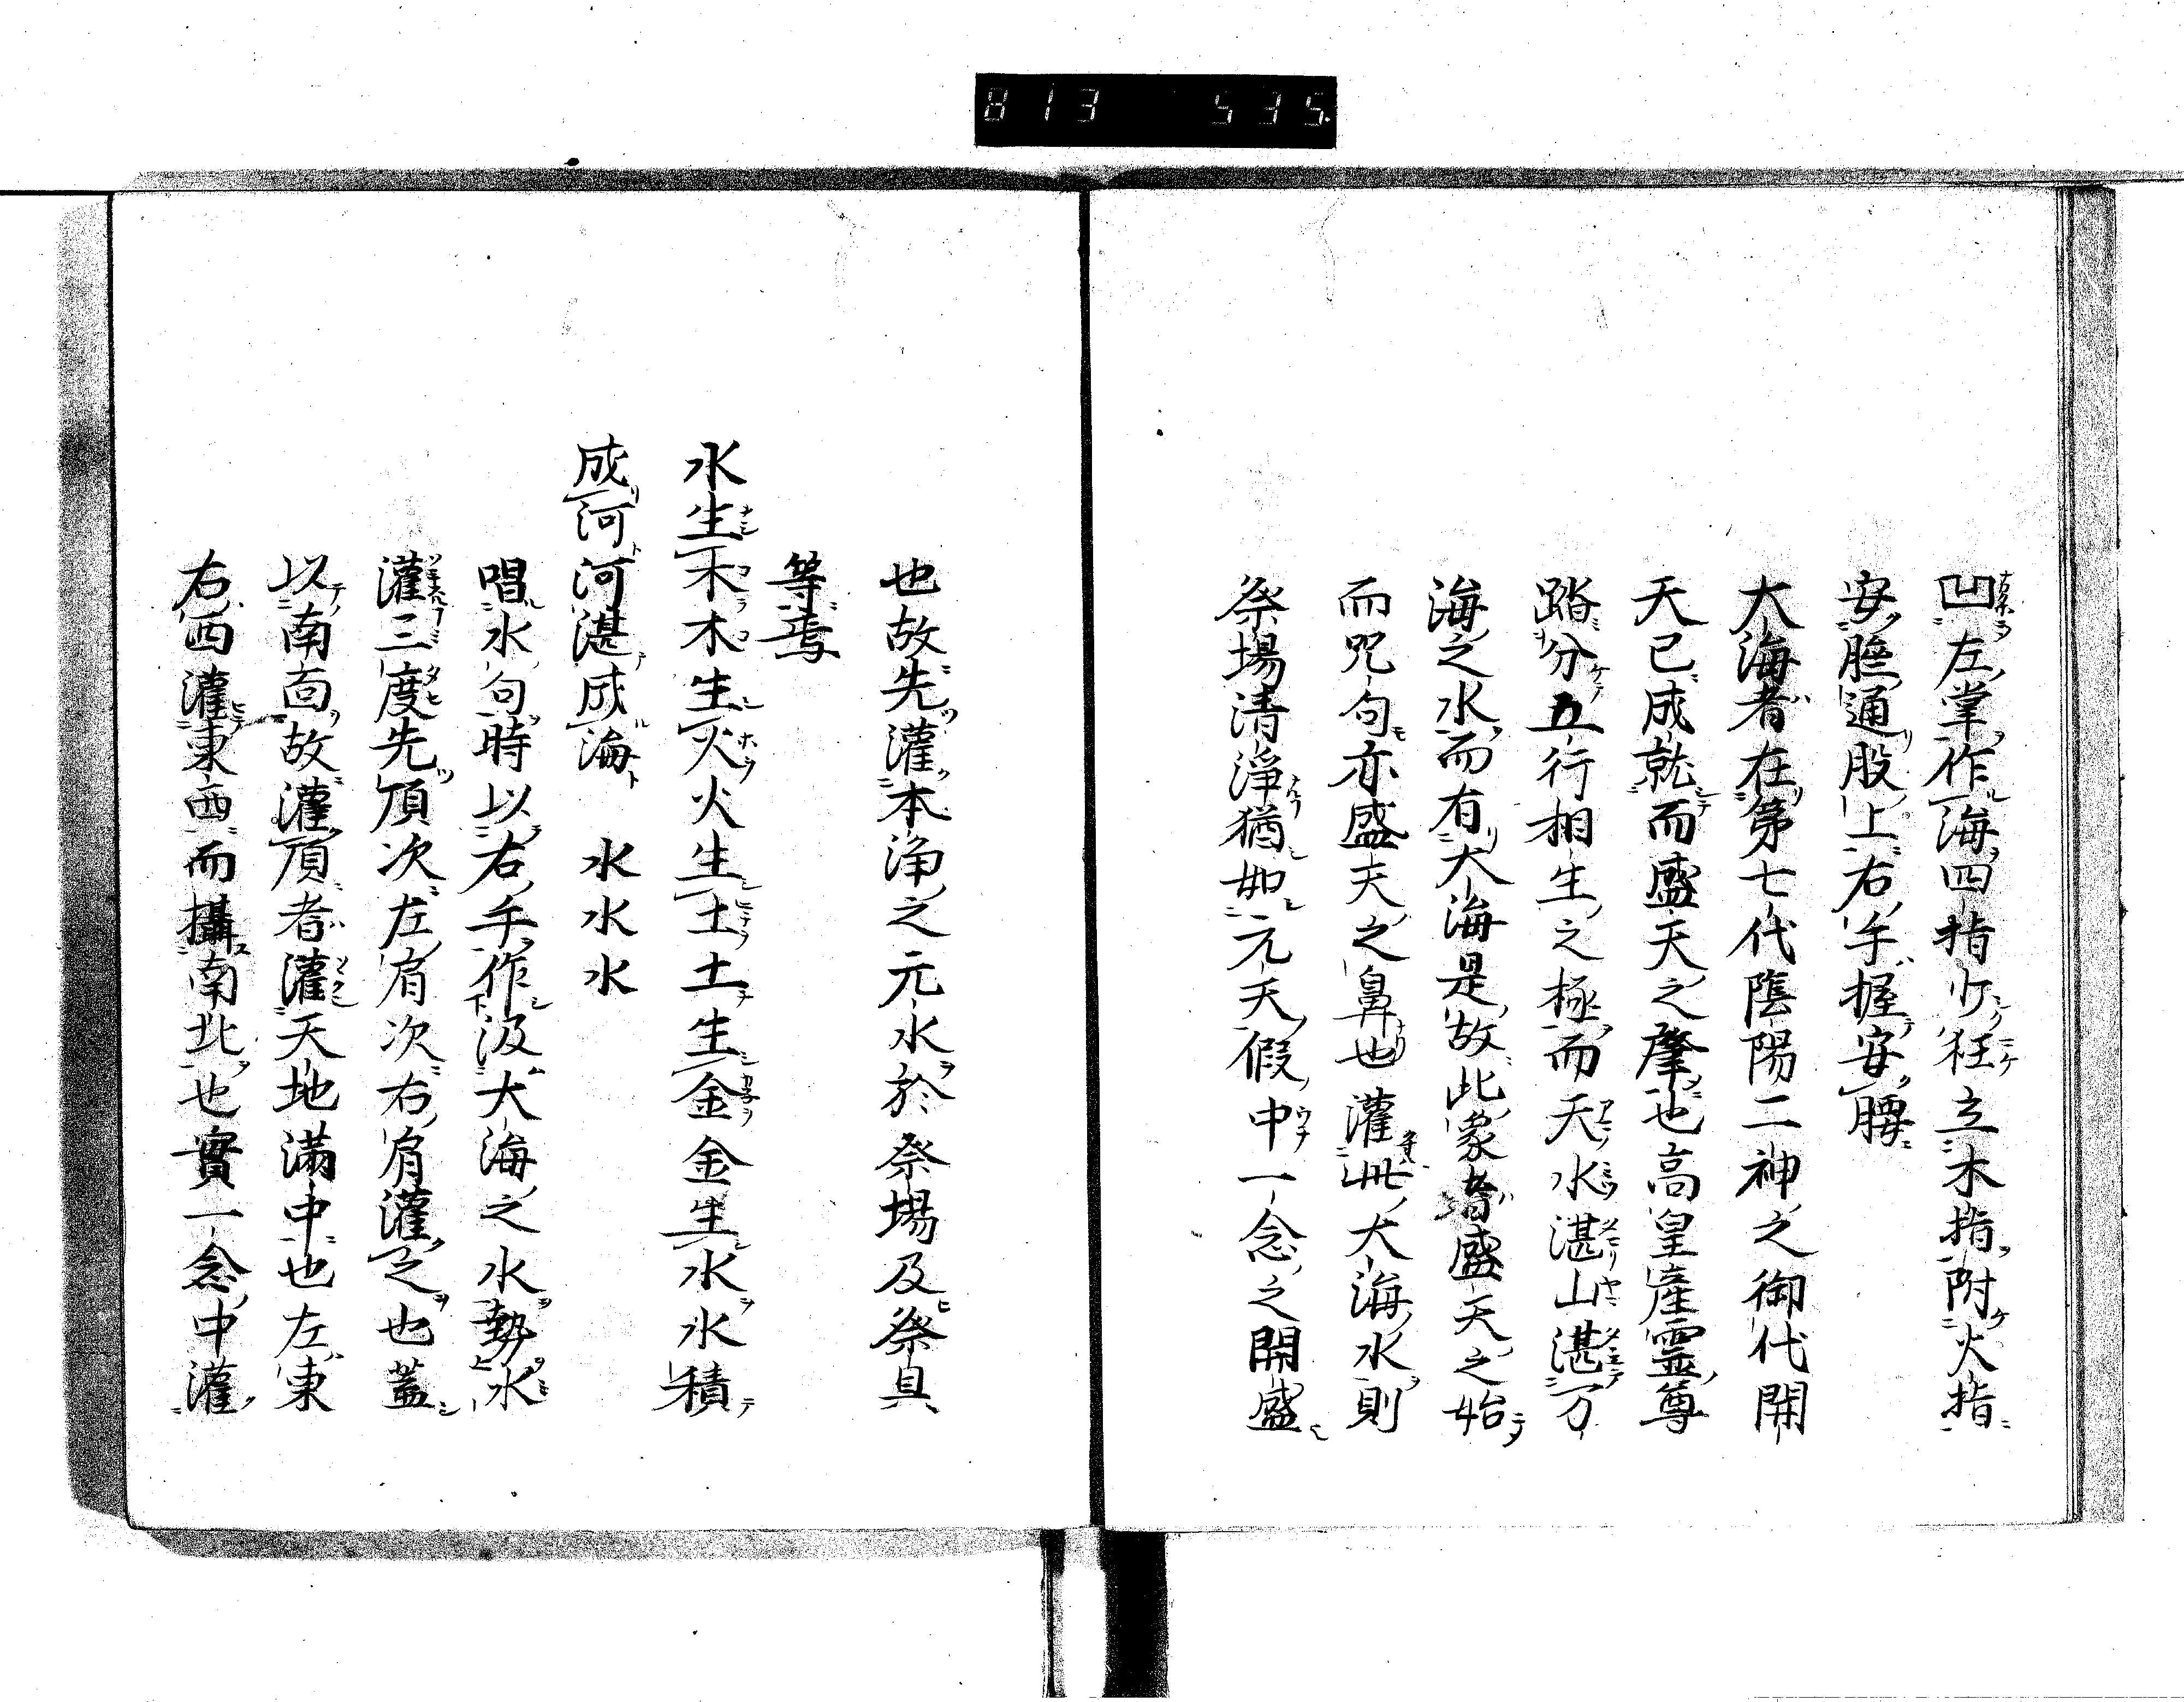 813 535
凹左掌作海四指少狂立木指附火指
安臍通股上右手握安腰
大海者在第七代陰陽二神之御代開
天已成就而盛天之肇也高皇産霊尊
踏分五行相生之極而天水湛山湛万
海之水而有大海是故此象者盛天之始
而咒句亦盛天之鼻也灌此大海水則
祭場清淨猶如元天假中一念之開盛
也故先灌本浄之元水於祭場及祭具
等焉
水生木木生火火生土土生金金生水水積
成河河湛成海　水水水
唱水句時以右手作汲大海之水勢水
灌三度先頂次左肩次右肩灌之也蓋
以南面故灌頂者灌天地満中也左東
右西灌東西而攝南北也實一念中灌